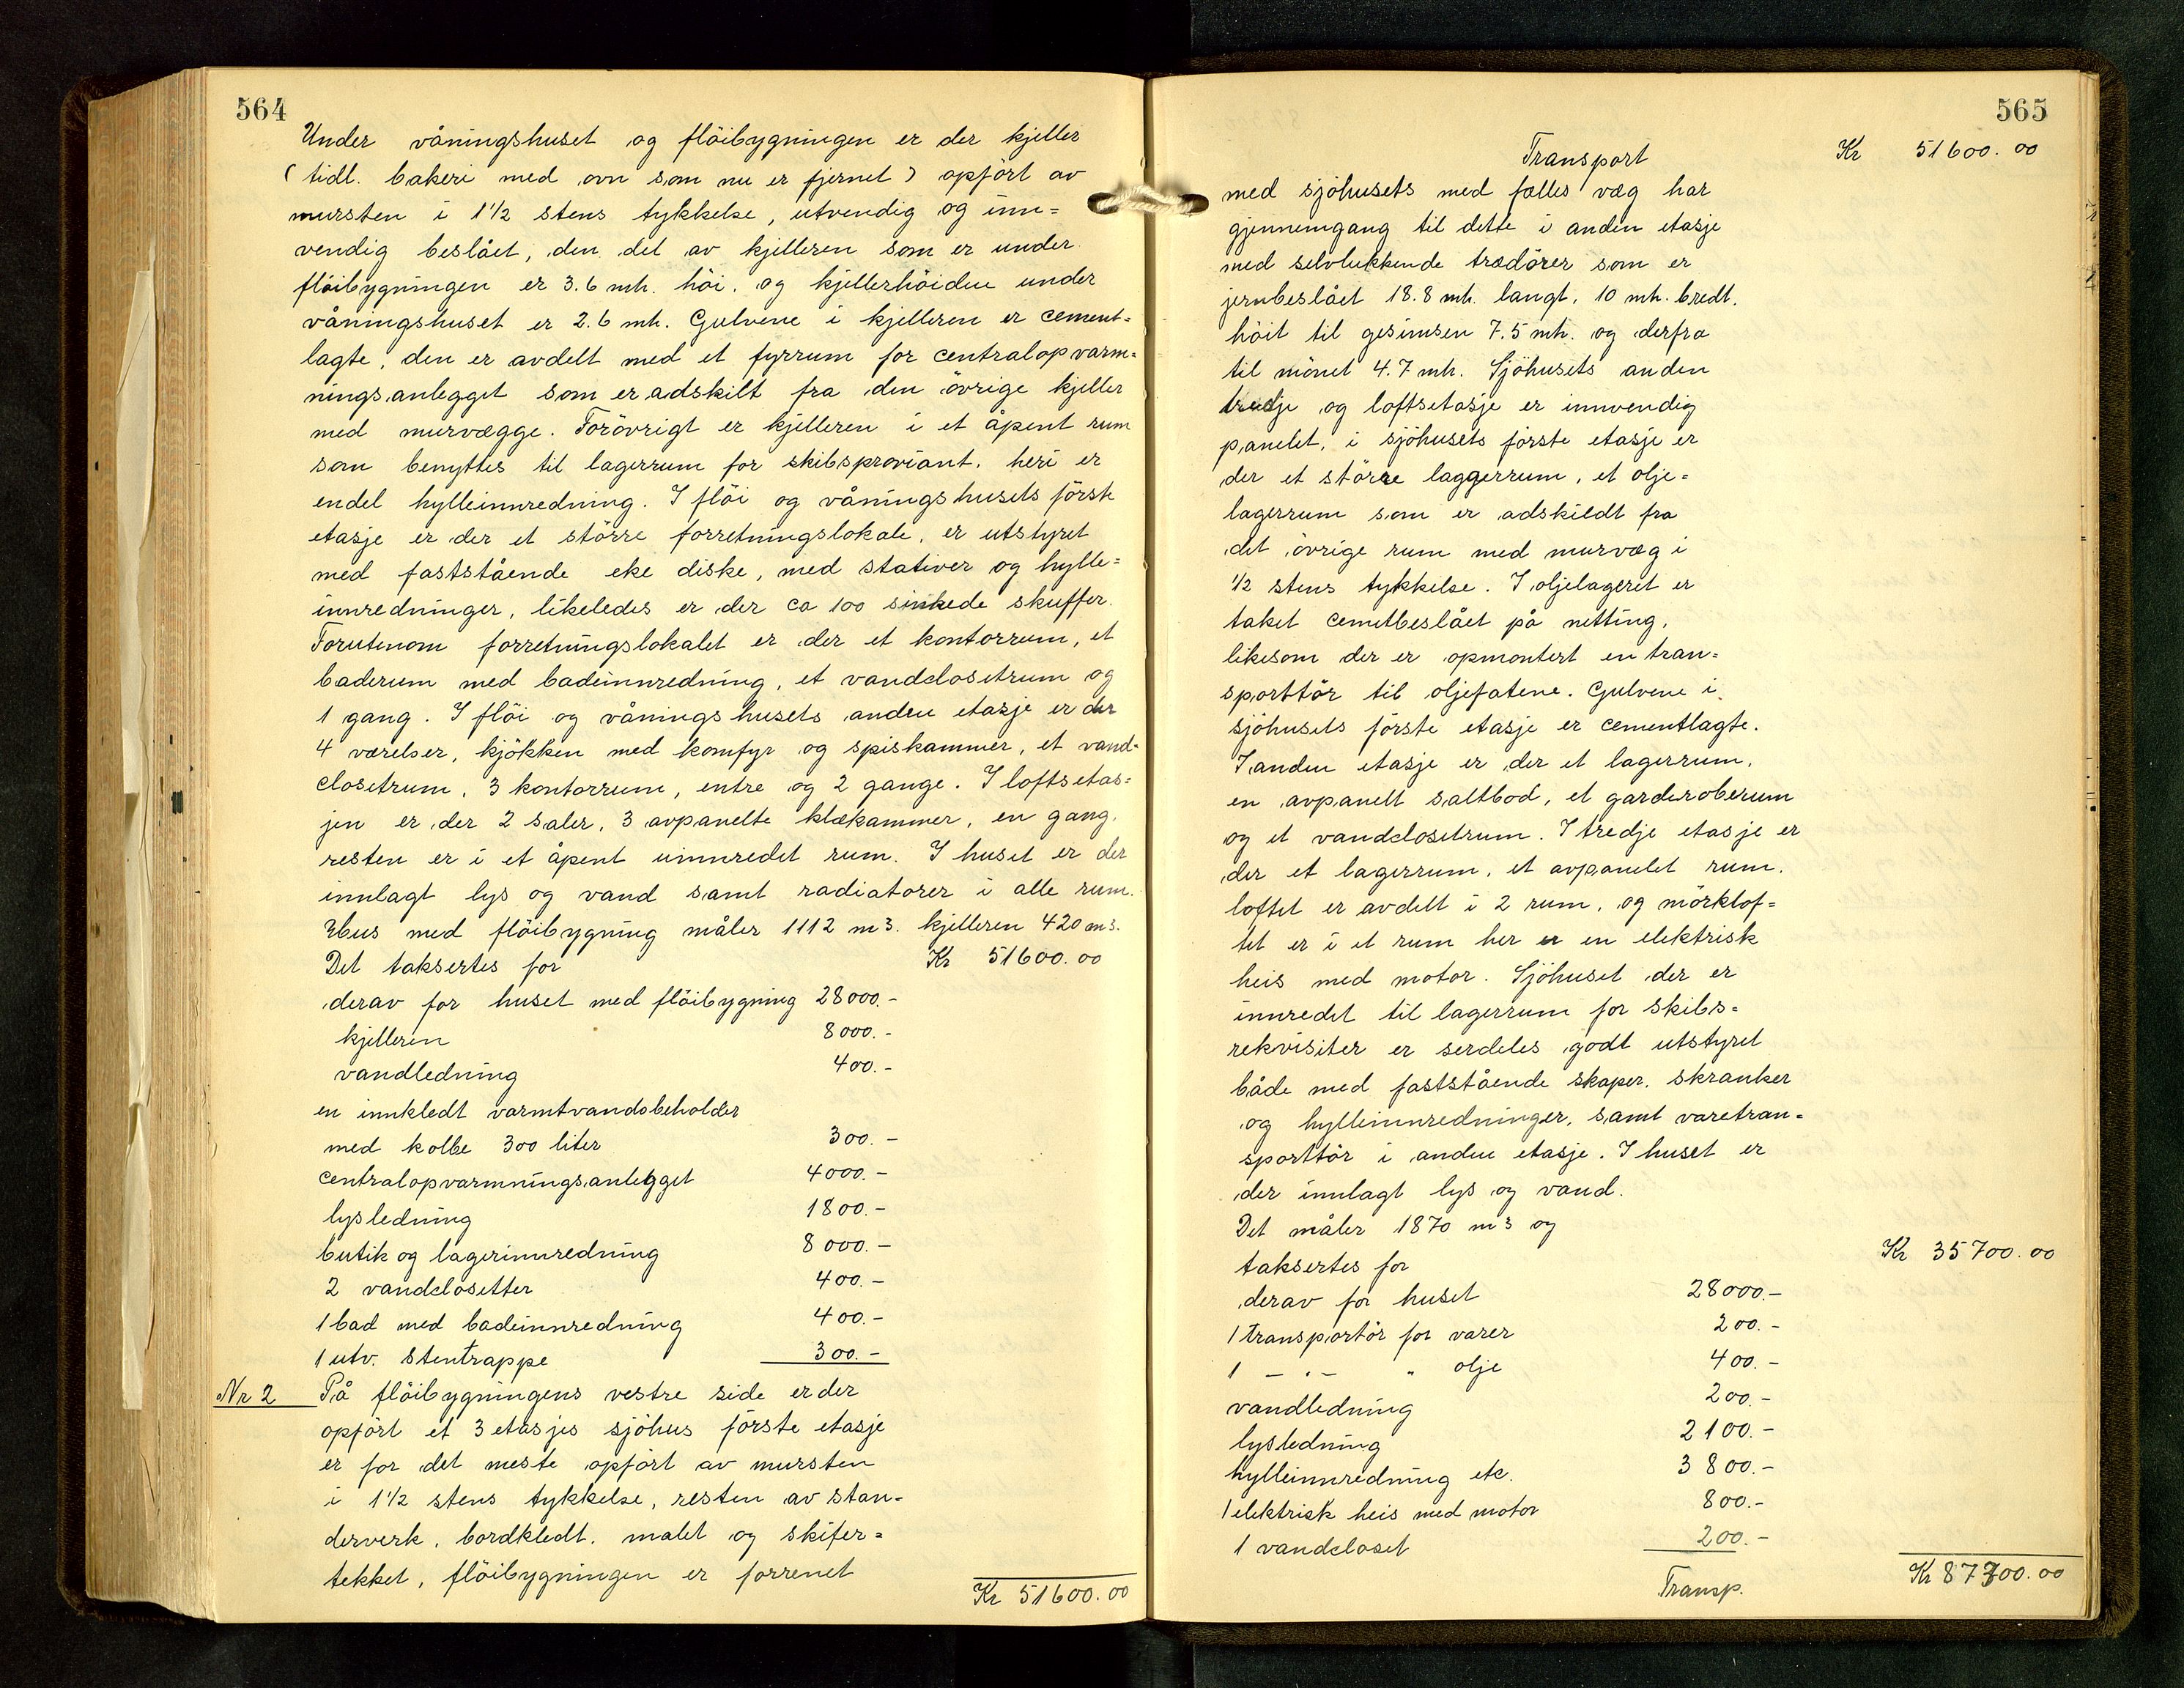 564
Under våningshuset og flöibygningen er der kjeller
(tidl. bakeri med ovn som nu er fjernet) opfört av
mursten i 1 1/2 stens tykkelse, utvendig og inn=
vendig beslået, den del av kjelleren som er under
flöibygningen er 3.6 mh. höi. og kjellerhöiden under
våningshuset er 2.6 mh. Gulvene i kjelleren er cement=
lagte, den er avdelt med et fyrrum for centralopvarm=
ningsanlegget som er adskilt fra den övrige kjeller
med murvægge. Forövrigt er kjelleren i et åpent rum
som benyttes til lagerrum for skibsproviant, heri er
endel hylleinnredning. I flöi og våningshusets förste
etasje er der et större forretningslokale, er utstyret
med faststående eke diske, med stativer og hylle=
innredninger, likeledes er der ca 100 sinkede skuffer.
Forutenom forretningslokalet er der et kontorrum, et
baderum med badeinnredning, et vandclosetrum og
1 gang. I flöi og våningshusets anden etasje er der
4 værelser, kjökken med komfyr og spiskammer, et vand=
closetrum, 3 kontorrum, entre og 2 gange. I loftsetas=
jen er der 2 saler, 3 avpanelte klækammer, en gang,
resten er i et åpent uinnredet rum. I huset er der
innlagt lys og vand samt radiatorer i alle rum.
Hus med flöibygning måler 1112 m3. kjelleren 420 m3.
Det taksertes for Kr 51600.00
derav for huset med flöibygning 28000.-
kjelleren 8000.-
vandledning 400.-
en innkledt varmtvandsbeholder
med kolbe 300 liter 300.-
centralopvarmningsanlegget 4000.-
lysledning 1800.-
butik og lagerinnredning 8000.-
2 vandclosetter 400.-
1 bad med badeinnredning 400.-
1 utv. stentrappe 300.-
Nr 2 På flöibygningens vestre side er der
opfört et 3 etasjes sjöhus förste etasje
er for det meste opfört av mursten
i 1 1/2 stens tykkelse, resten av stan=
derverk, bordkledt, malet og skifer=
tekket, flöibygningen er forrenet
Kr 51600.00
565
Transport Kr 51600.00
med sjöhusets med fælles væg har
gjennemgang til dette i anden etasje
med selvlukkende trædörer som er
jernbeslået 18.8 mh. langt, 10 mh. bredt.
höit til gesimsen 7.5 mh. og derfra
til mönet 4.7 mh. Sjöhusets anden
tredje og loftsetasje er innvendig
panelet, i sjöhusets förste etasje er
der et större laggerrum, et olje=
lagerrum som er adskildt fra
det övrige rum med murvæg i
1/2 stens tykkelse. I oljelageret er
taket cemetbeslået på netting,
likesom der er opmontert en tran=
sporttör til oljefatene. Gulvene i
sjöhusets förste etasje er cementlagte.
I anden etasje er der et lagerrum,
en avpanelt saltbod, et garderoberum
og et vandclosetrum. I tredje etasje er
der et lagerrum, et avpanelet rum.
loftet er avdelt i 2 rum, og mörklof=
tet er i et rum her er en elektrisk
heis med motor. Sjöhuset der er
innredet til lagerrum for skibs=
rekvisiter er serdeles godt utstyret
både med faststående skaper, skranker
og hylleinnredninger, samt varetran=
sporttör i anden etasje. I huset er
der innlagt lys og vand.
Det måler 1870 m3 og
taksertes for Kr 35700.00
derav for huset 28000.-
1 transportör for varer 200.-
1 - " - " olje 400.-
vandledning 200.-
lysledning 2100.-
hylleinnredning etc. 3800.-
1 elektrisk heis med motor 800.-
1 vandcloset 200.-
Transp. Kr 87300.00